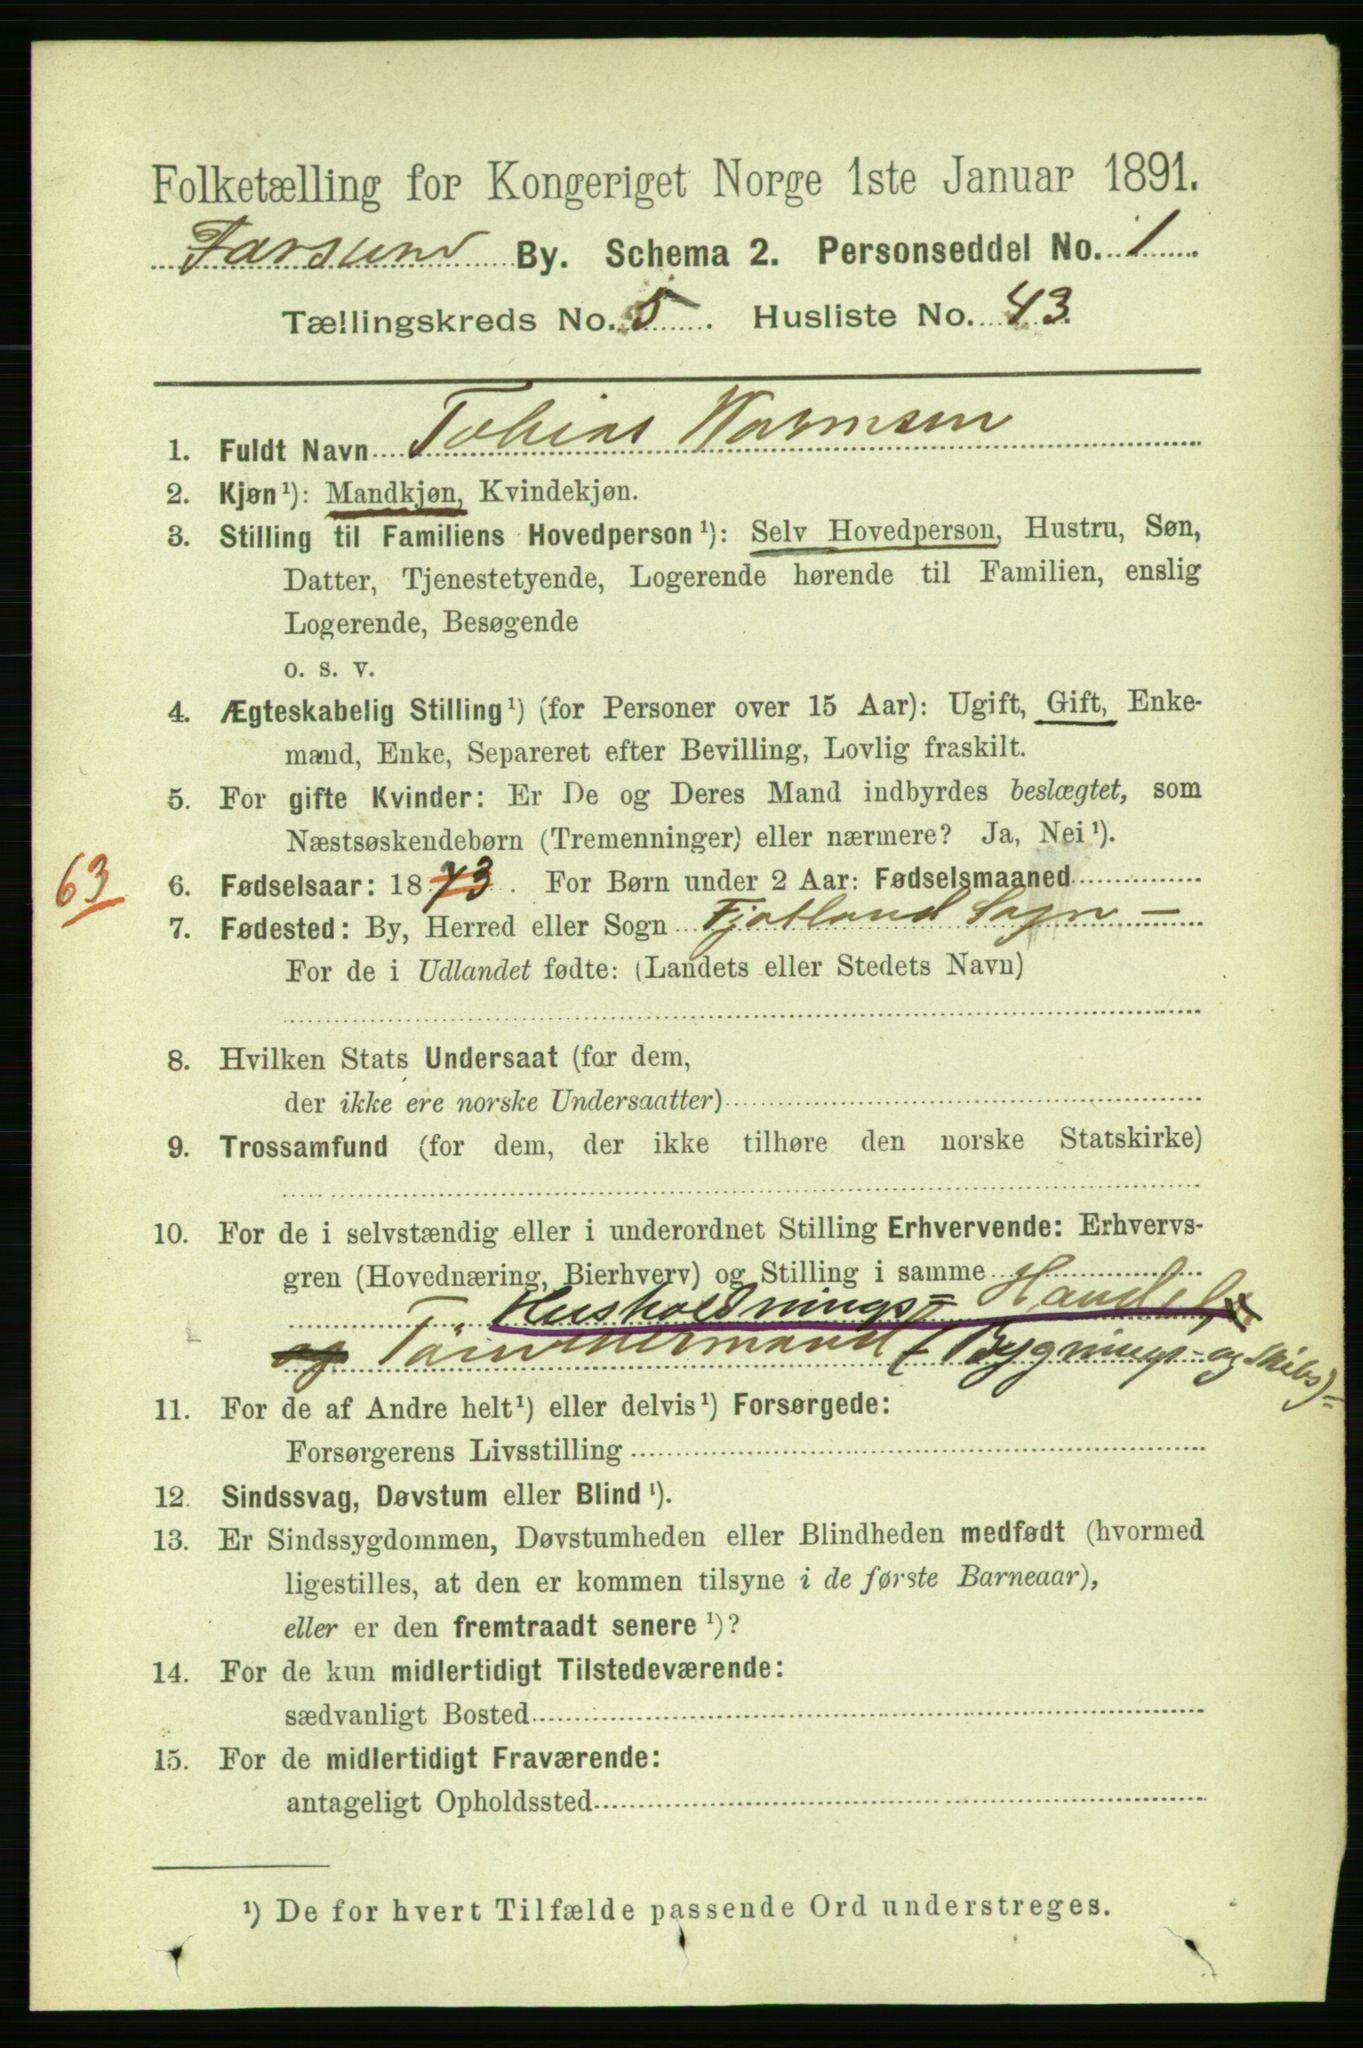 Folketælling for Kongeriget Norge 1ste Januar 1891.
Farsund By. Schema 2. Personseddel No. 1
Tællingskreds No. 5. Husliste No. 43.
1. Fuldt Navn Tobias Warmsen
2. Kjøn¹): Mandkjøn, Kvindekjøn.
3. Stilling til Familiens Hovedperson¹): Selv Hovedperson, Hustru, Søn,
Datter, Tjenestetyende, Logerende hørende til Familien, enslig
Logerende, Besøgende
o. s. v.
4. Ægteskabelig Stilling¹) (for Personer over 15 Aar): Ugift, Gift, Enke-
mand, Enke, Separeret efter Bevilling, Lovlig fraskilt.
5. For gifte Kvinder: Er De og Deres Mand indbyrdes beslægtet, som
Næstsøskendebørn (Tremenninger) eller nærmere? Ja, Nei¹).
63 6. Fødselsaar: 1873. For Børn under 2 Aar: Fødselsmaaned
7. Fødested: By, Herred eller Sogn Fjotland Sogn -
For de i Udlandet fødte: (Landets eller Stedets Navn)
8. Hvilken Stats Undersaat (for dem,
der ikke ere norske Undersaatter)
9. Trossamfund (for dem, der ikke tilhøre den norske Statskirke)
10. For de i selvstændig eller i underordnet Stilling Erhvervende: Erhvervs-
gren (Hovednæring, Bierhverv) og Stilling i samme
Husholdnings= Handel,
og Tømmermand (Bygnings- og Skibs)=
11. For de af Andre helt¹) eller delvis¹) Forsørgede:
Forsørgerens Livsstilling
12. Sindssvag, Døvstum eller Blind¹).
13. Er Sindssygdommen, Døvstumheden eller Blindheden medfødt (hvormed
ligestilles, at den er kommen tilsyne i de første Barneaar),
eller er den fremtraadt senere¹)?
14. For de kun midlertidigt Tilstedeværende:
sædvanligt Bosted
15. For de midlertidigt Fraværende:
antageligt Opholdssted
¹) De for hvert Tilfælde passende Ord understreges.